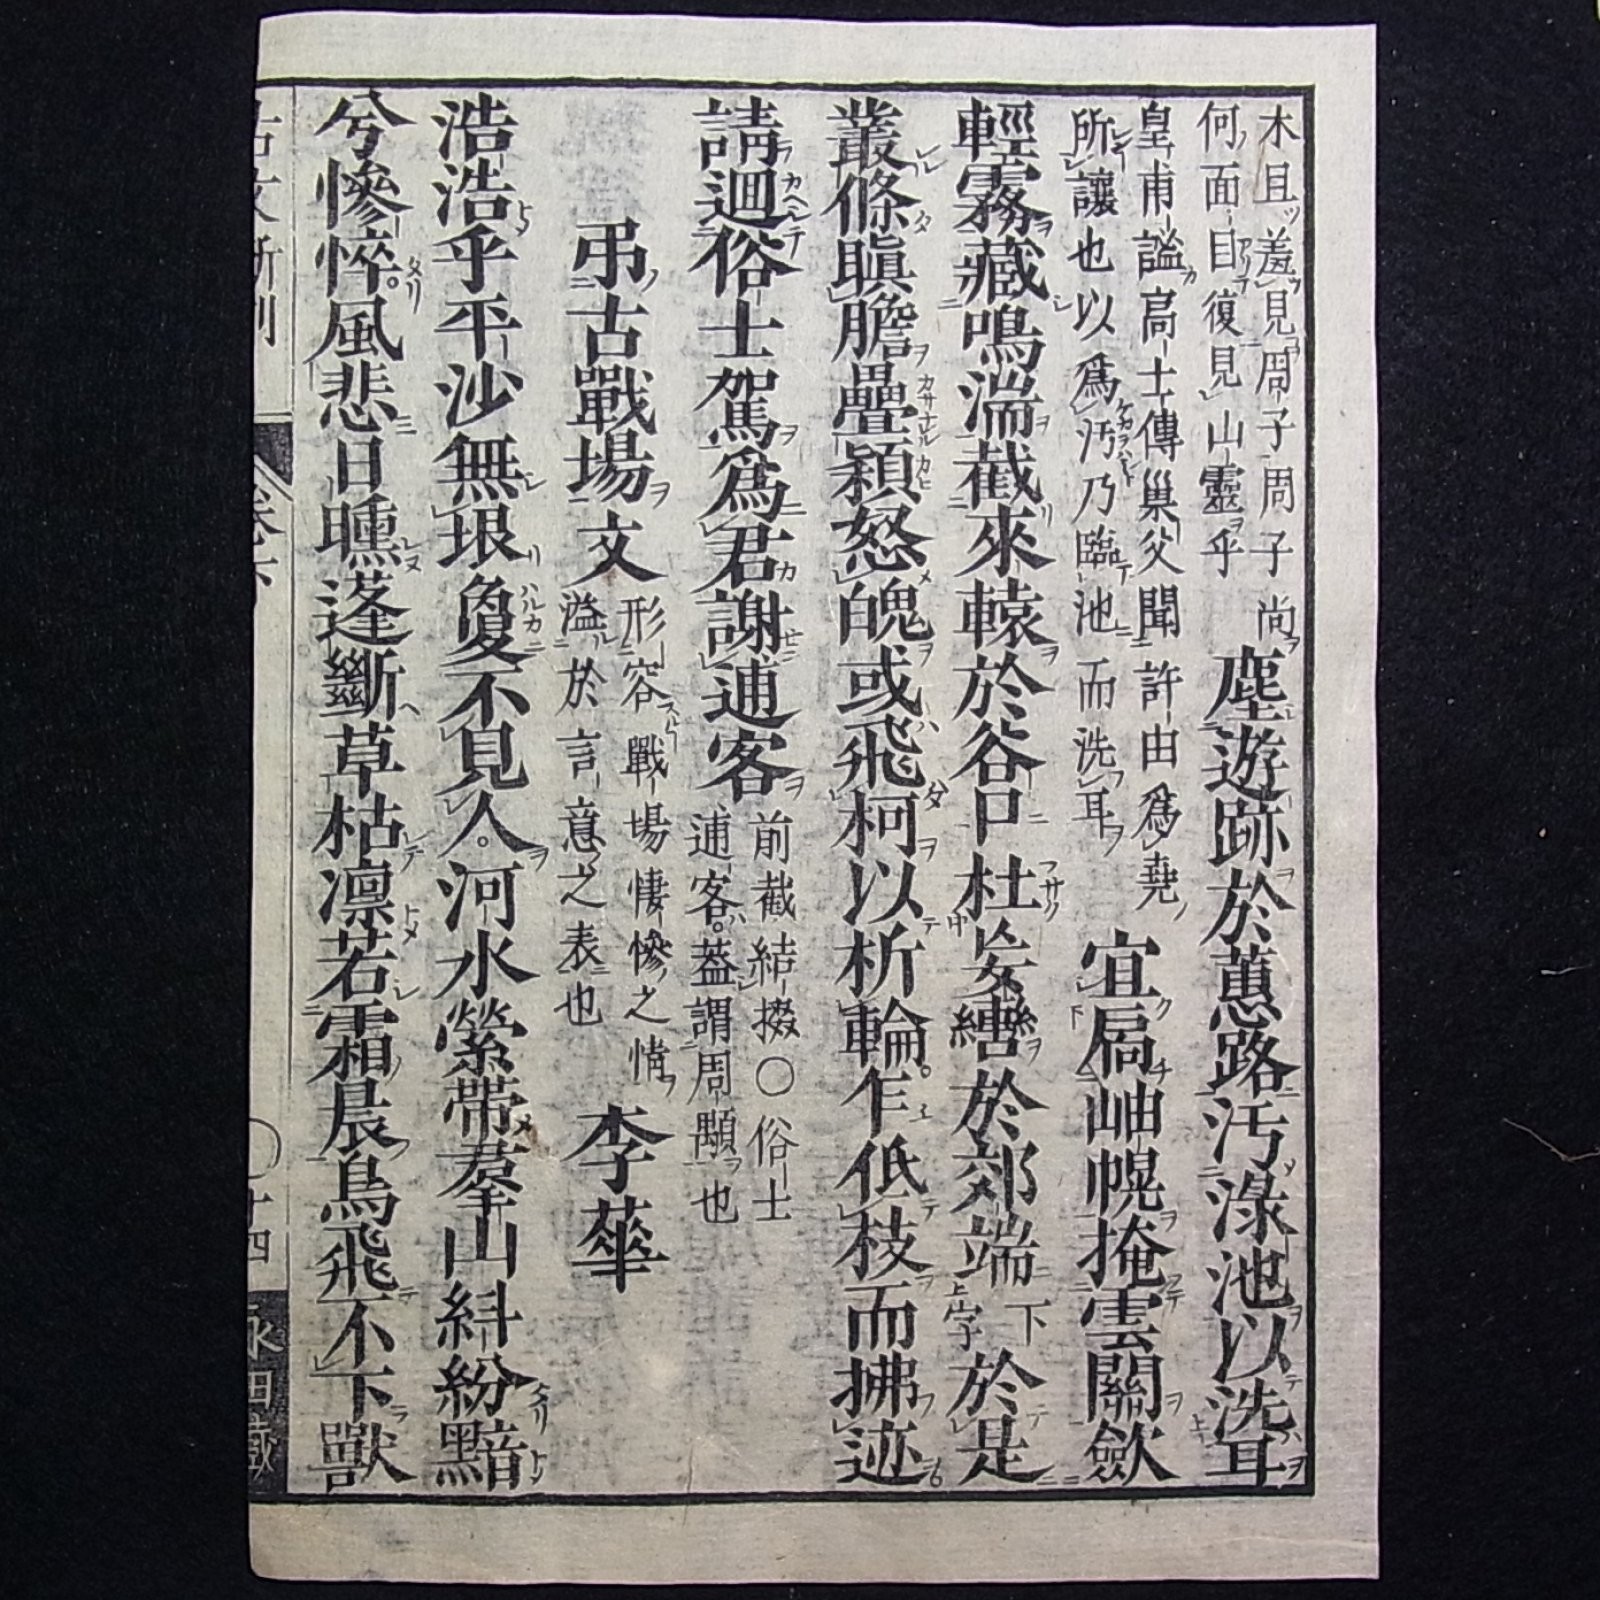 木且羞見周子周子尚
何面目復見山靈乎
塵遊跡於蕙路汚淥池以洗耳
皇甫謐高士傳巢父聞許由爲堯
所讓也以爲汚乃臨池而洗耳
宜扃岫幌掩雲關斂
輕霧藏鳴湍截來轅於谷口杜妄轡於郊端
下
上字
於是
叢條瞋膽疊穎怒魄或飛柯以折輪。乍低枝而拂迹
請迴俗士駕爲君謝逋客
前截結掇○俗士
逋客。蓋謂周顒也
弔古戰場文
形容戰場悽慘之情
溢於言意之表也
李華
浩浩乎平沙無垠敻不見人。河水縈帶羣山糾紛黯
兮慘悴。風悲日曛蓬斷草枯凛若霜晨鳥飛不下獸